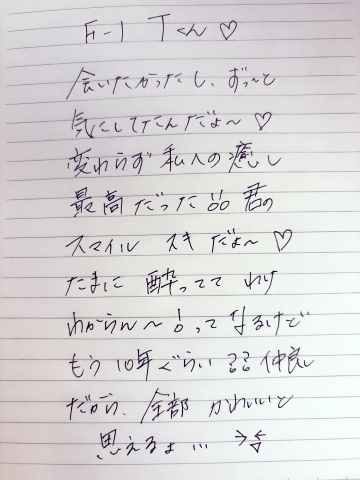 Fー1 Tくん♡
会いたかったし、ずっ〜と
気にしてたんだよ〜♡
変わらず私への癒し
最高だった!! 君の
スマイル スキ だよ〜♡
たまに 酔ってて わけ
わからん〜!ってなるけど
もう10年ぐらい?? 仲良し
だから、全部 かわいいと
思えるよ…